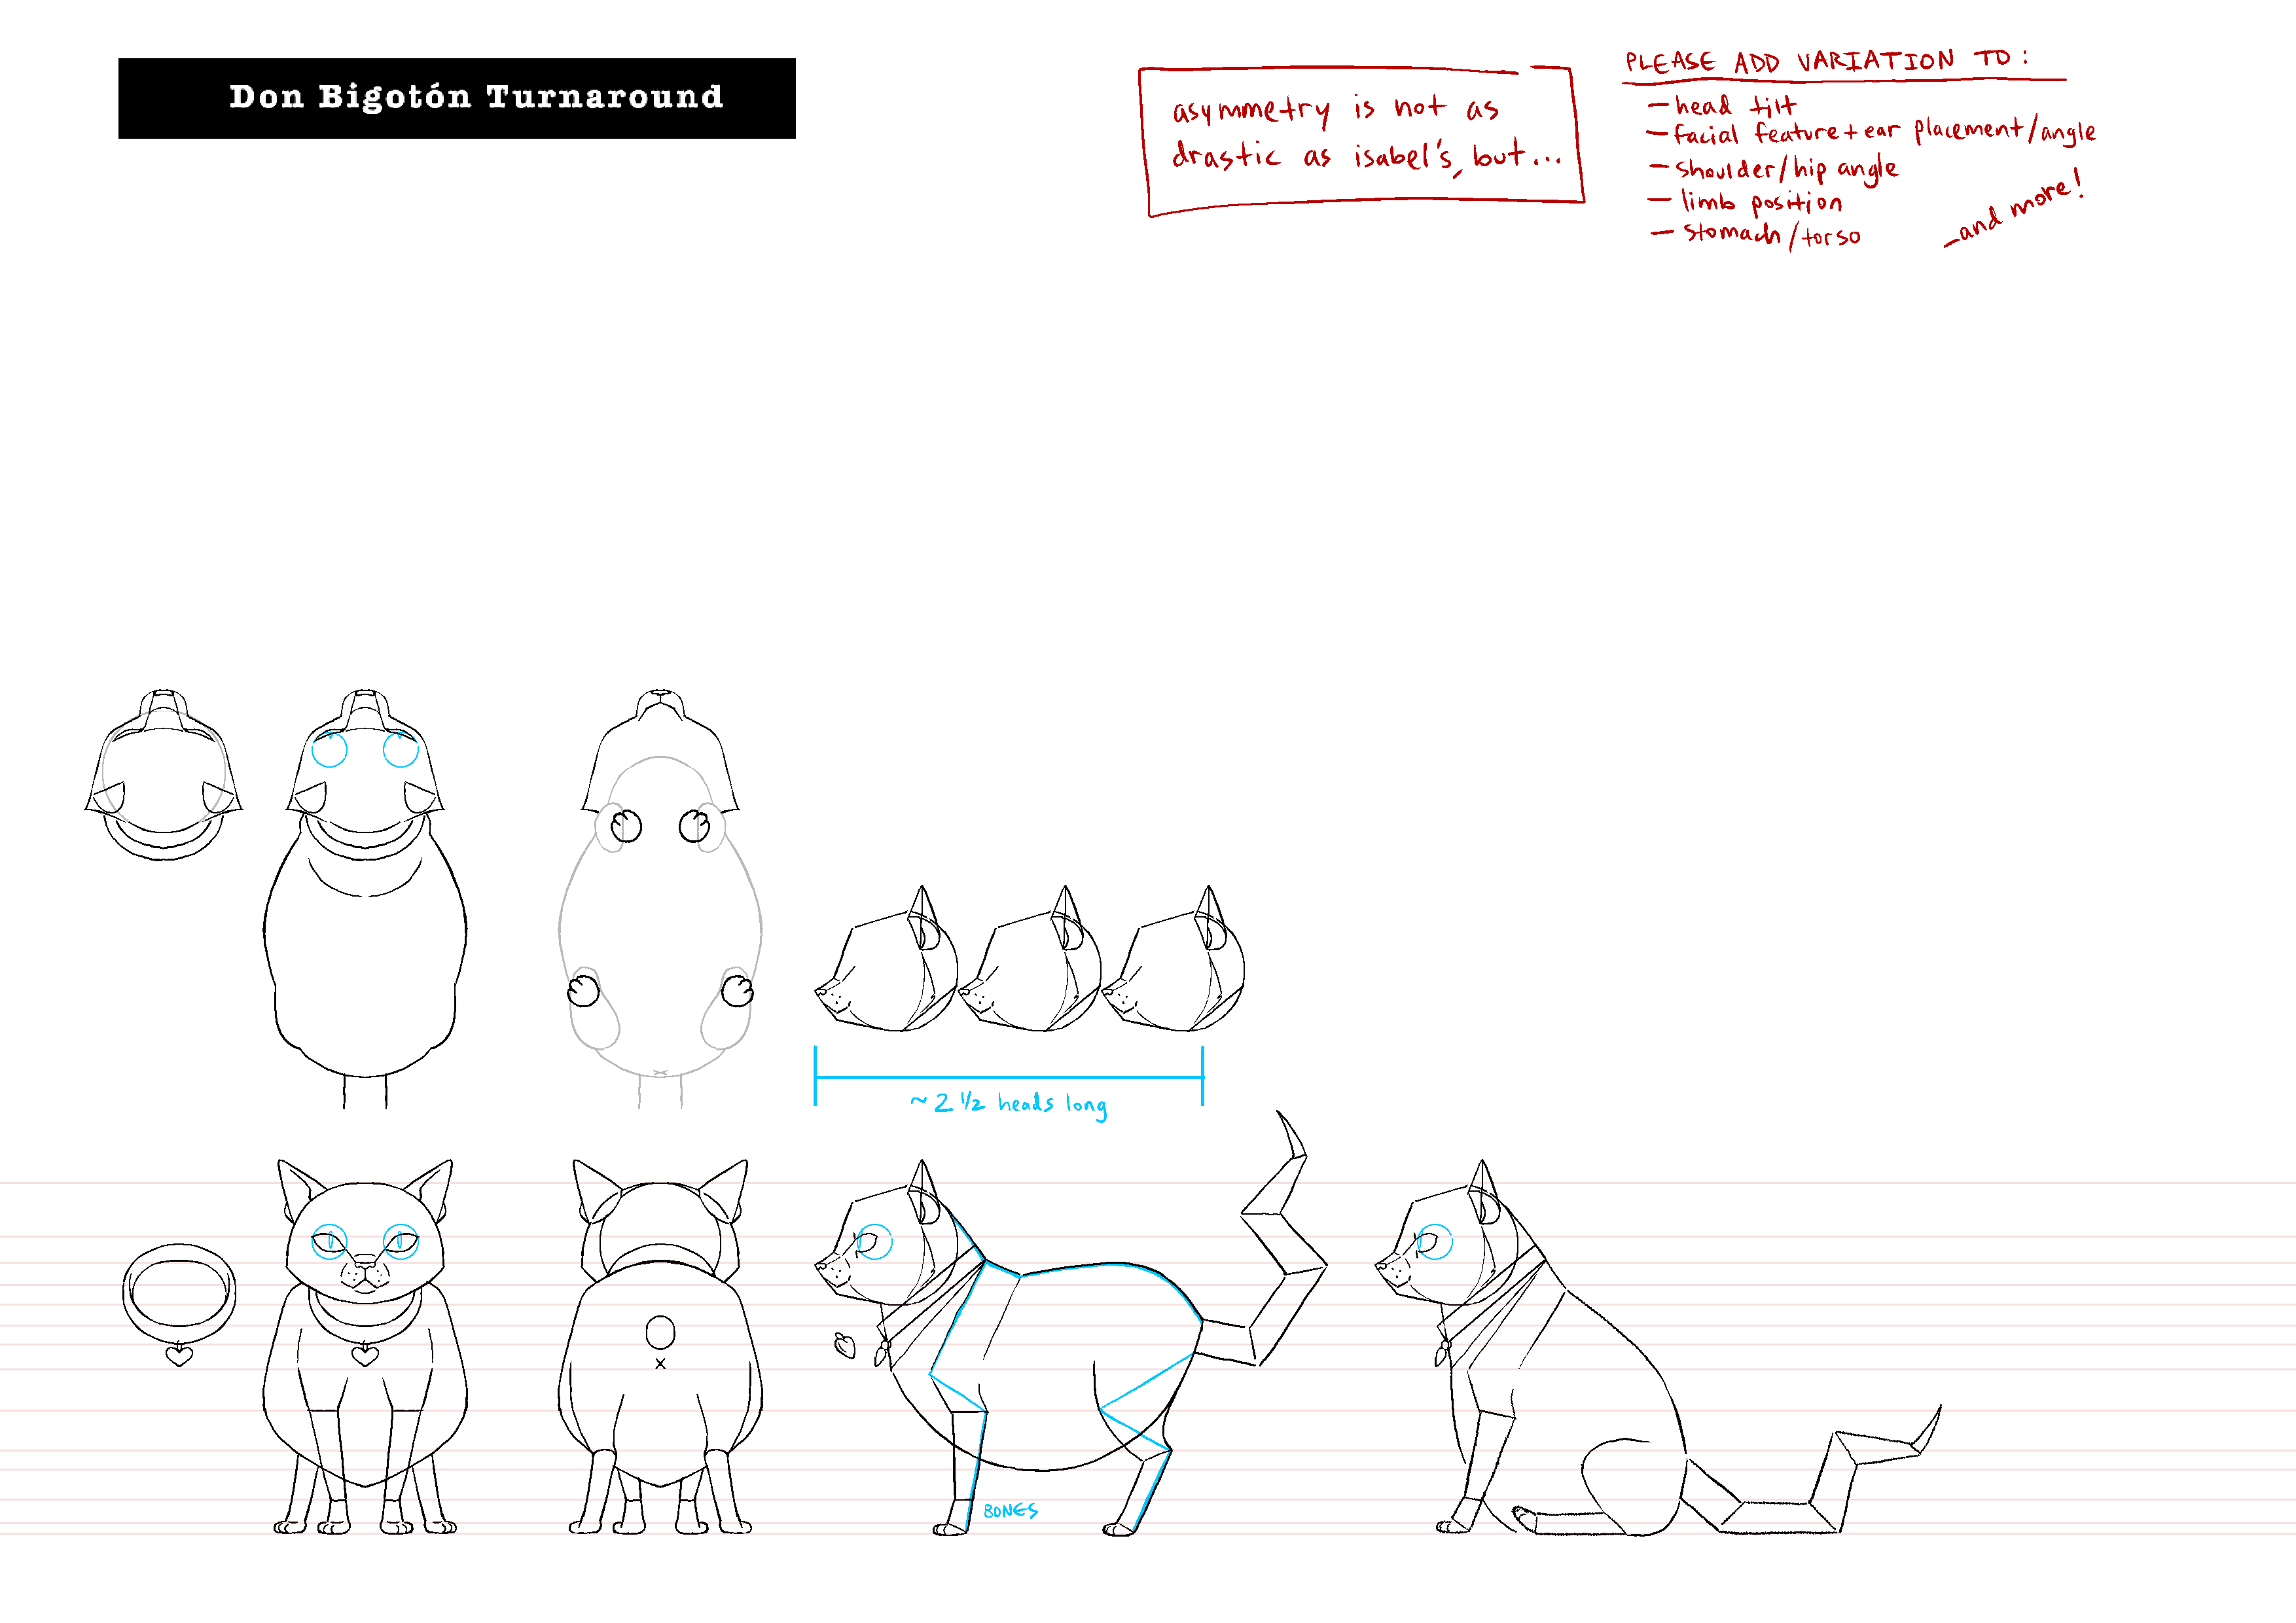 Don Bigotón Turnaround
asymmetry is not as
drastic as isabel's, but...
PLEASE ADD VARIATION TO:
- head tilt
- facial feature + ear placement/angle
- shoulder/hip angle
- limb position
- stomach/torso
- and more!
~ 2 1/2 heads long
BONES